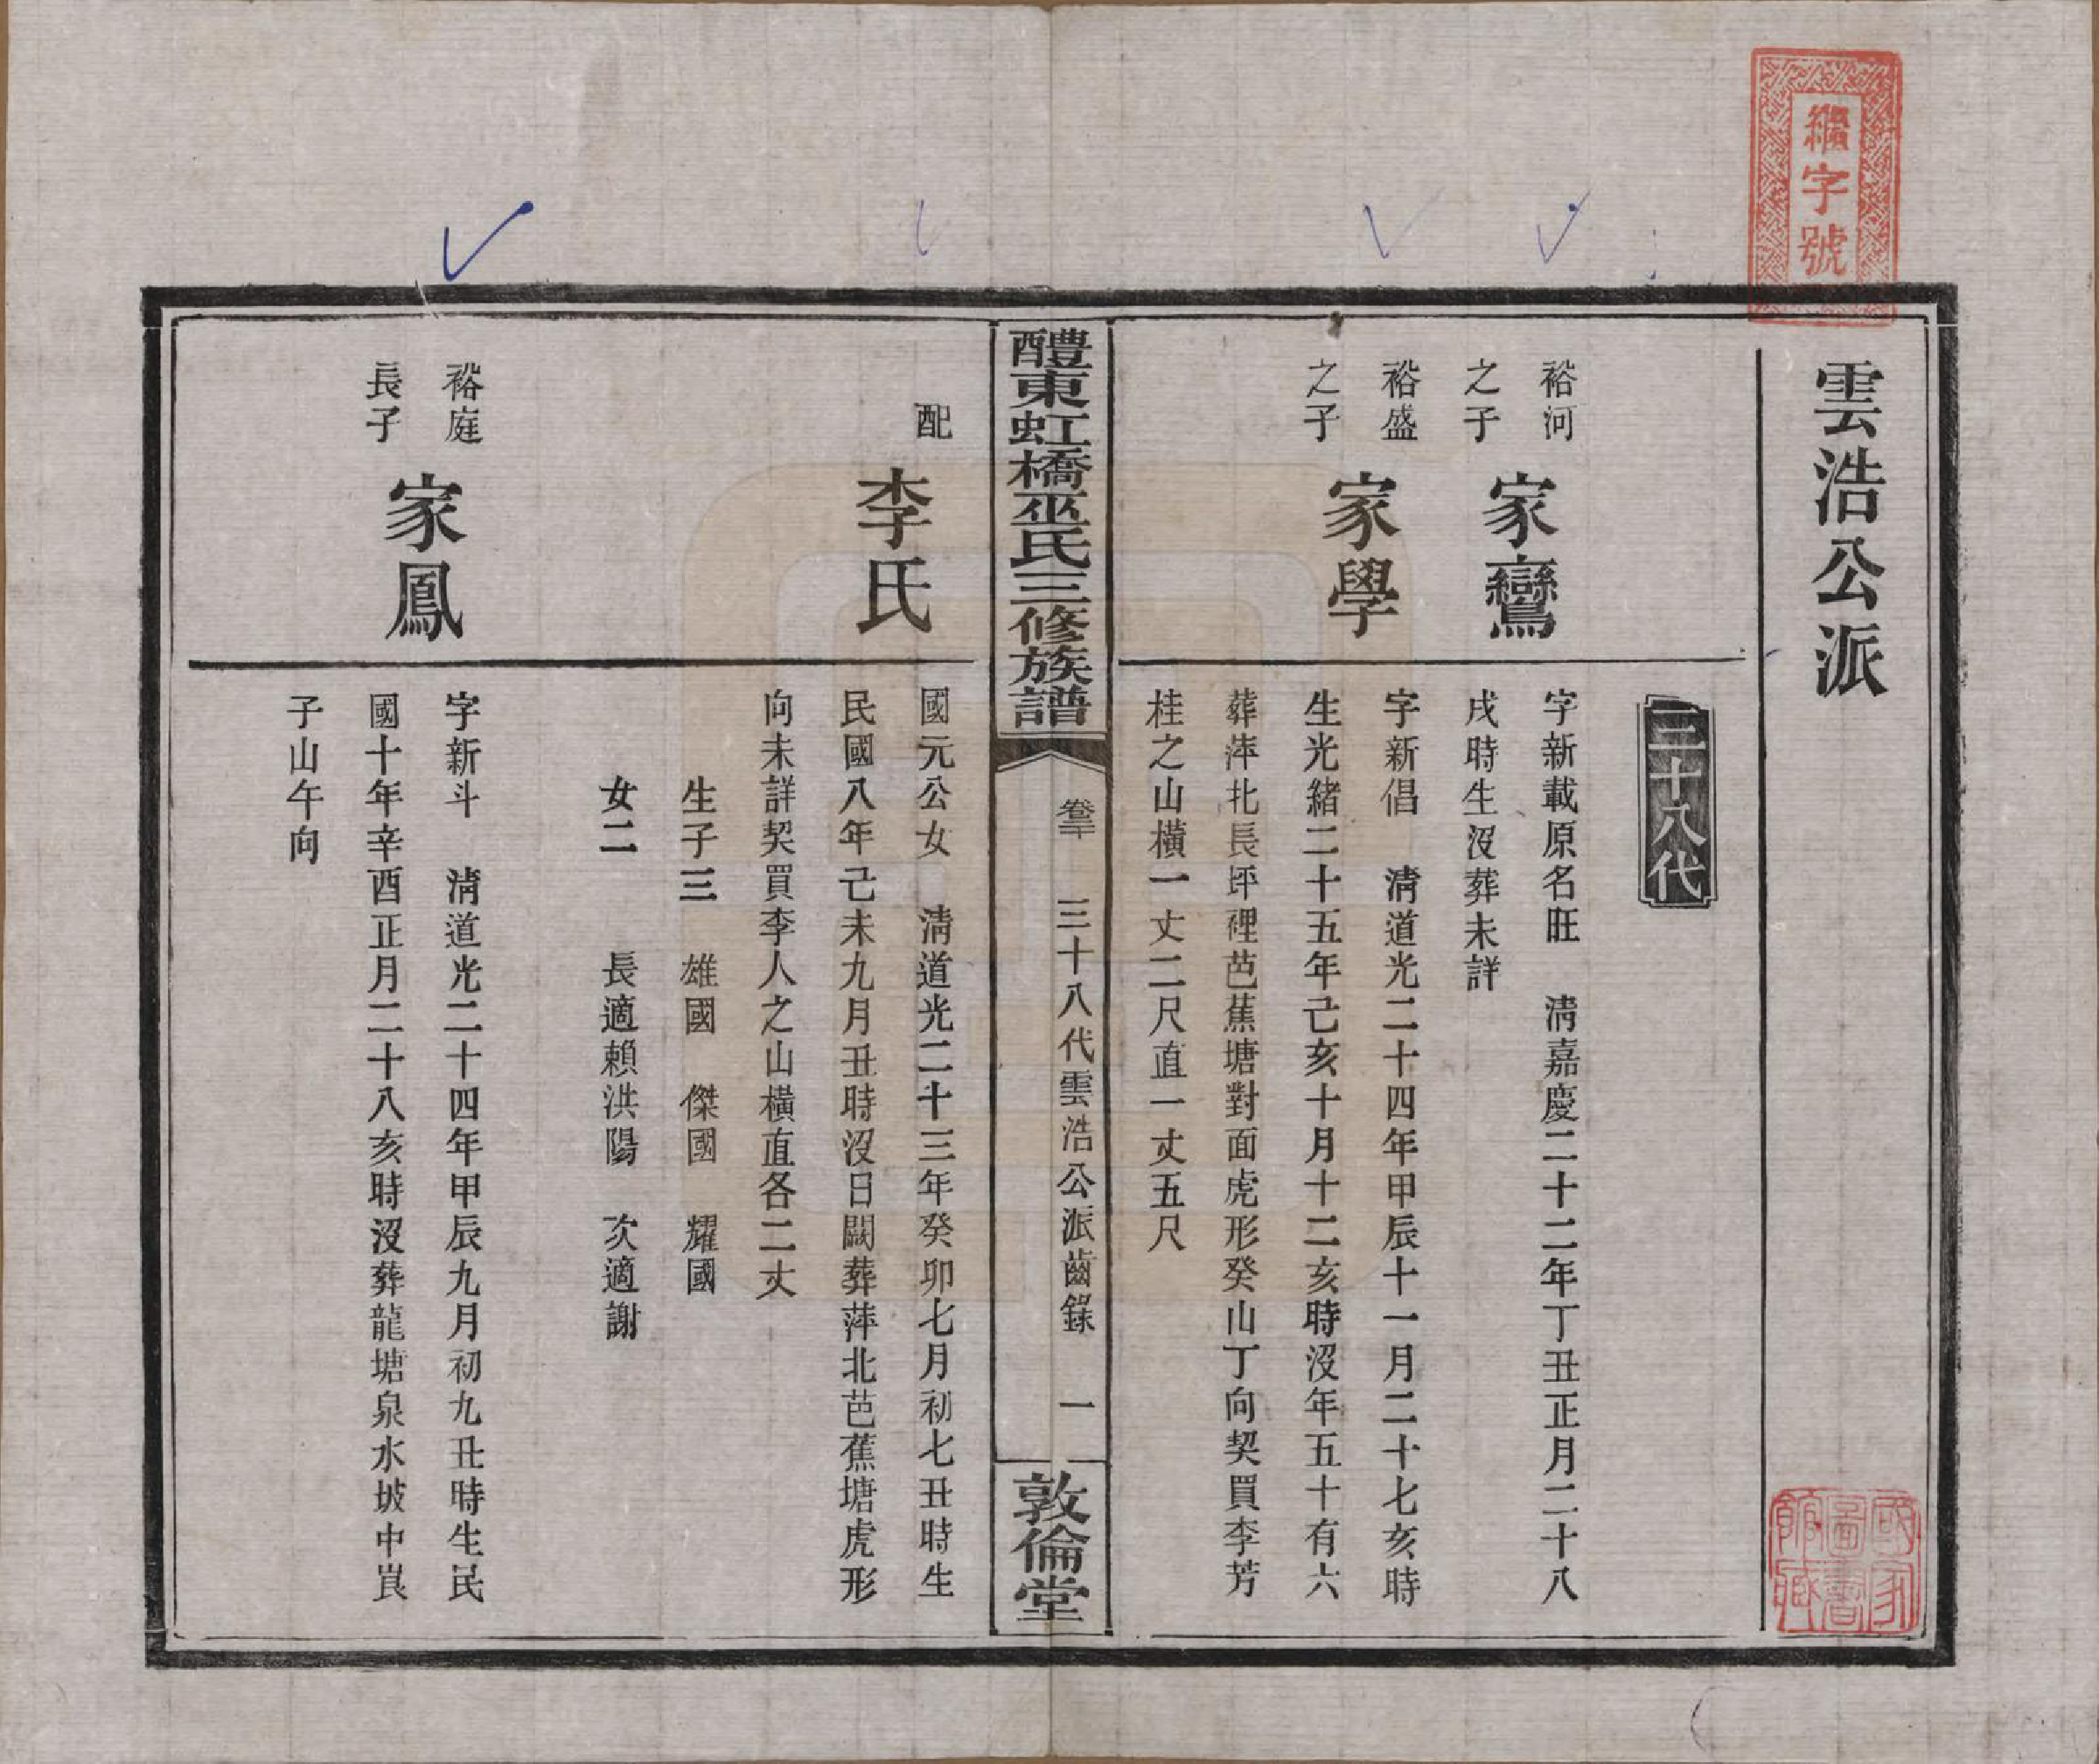 繩字號
雲浩公派
三十八代
裕河
之子
家鸞
字新載原名旺　清嘉慶二十二年丁丑正月二十八
戌時生沒葬未詳
裕盛
之子
家學
字新倡　清道光二十四年甲辰十一月二十七亥時
生光緒二十五年己亥十月十二亥時沒年五十有六
葬萍北長坪裡芭蕉塘對面虎形癸山丁向契買李芳
桂之山橫一丈二尺直一丈五尺
醴東虹橋巫氏三修族譜
三十八代雲浩公派齒錄
一
敦倫堂
配
李氏
國元公女　清道光二十三年癸卯七月初七丑時生
民國八年己未九月丑時沒日闕葬萍北芭蕉塘虎形
向未詳契買李人之山橫直各二丈
生子三　雄國　傑國　耀國
女二　長適賴洪陽　次適謝
裕庭
長子
家鳳
字新斗　清道光二十四年甲辰九月初九丑時生民
國十年辛酉正月二十八亥時沒葬龍塘泉水坡中崀
子山午向
國家圖書館藏